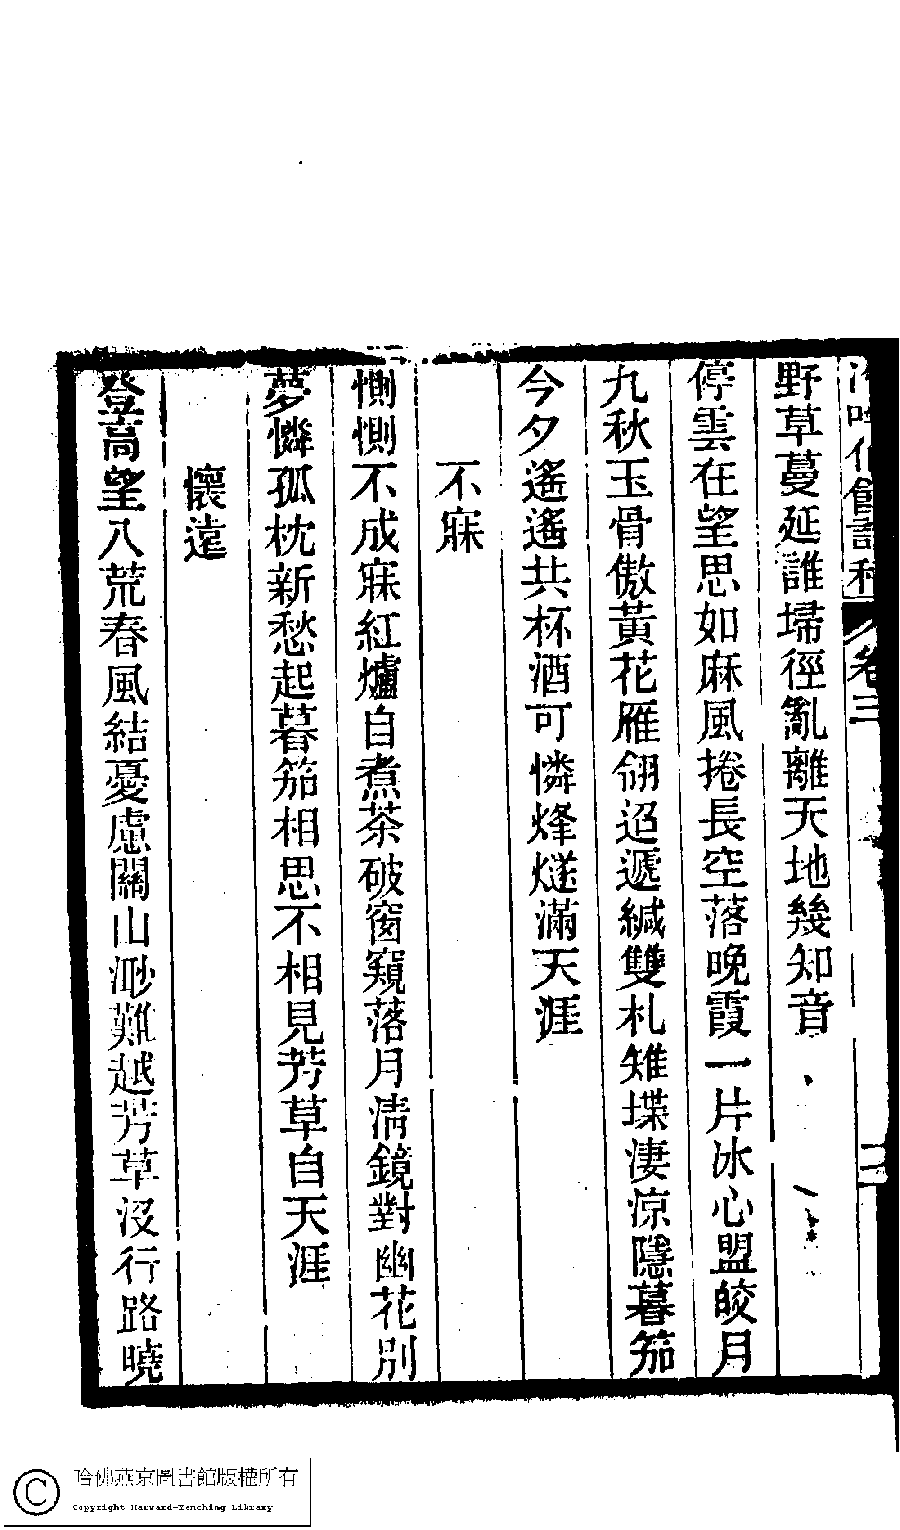 冷吟仙館詩稿 卷三 二
野草蔓延誰埽徑亂離天地幾知音
停雲在望思如麻風捲長空落晚霞一片冰心盟皎月
九秋玉骨傲黃花雁翎迢遞緘雙札雉堞淒涼隱暮笳
今夕遙遙共杯酒可憐烽燧滿天涯
不寐
惻惻不成寐紅爐自煮茶破窗窺落月清鏡對幽花別
夢憐孤枕新愁起暮笳相思不相見芳草自天涯
懷遠
登高望八荒春風結憂慮關山渺難越芳草沒行路曉
哈佛燕京圖書館版權所有
Copyright Harvard-Yenching Library